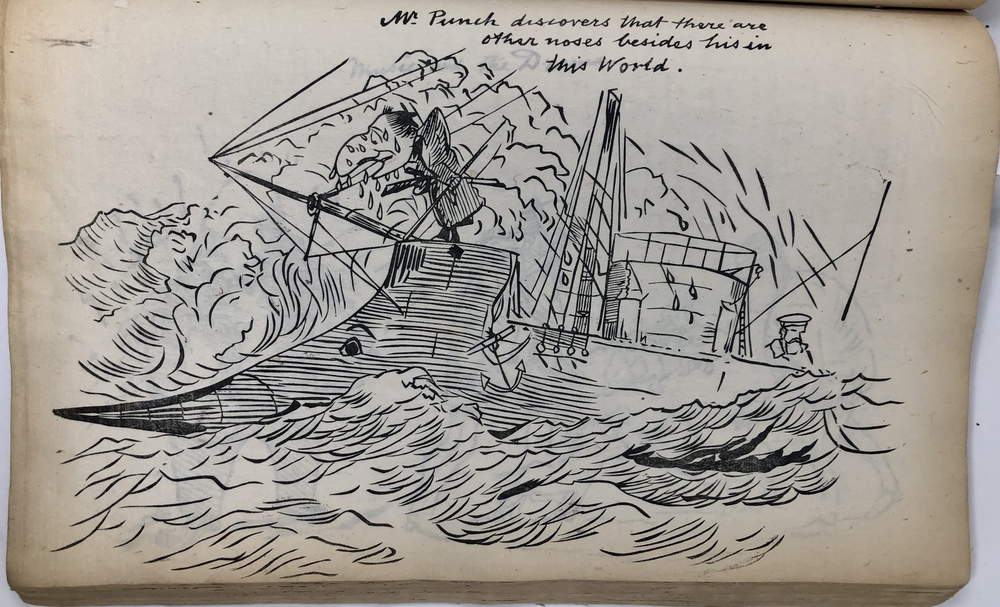 Mr. Punch discovers that there are
other noses besides his in
this World.